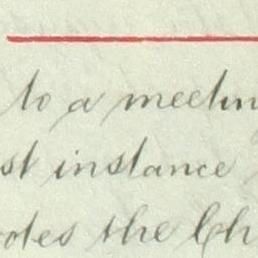 to a meetin
st instance
otes the Ch